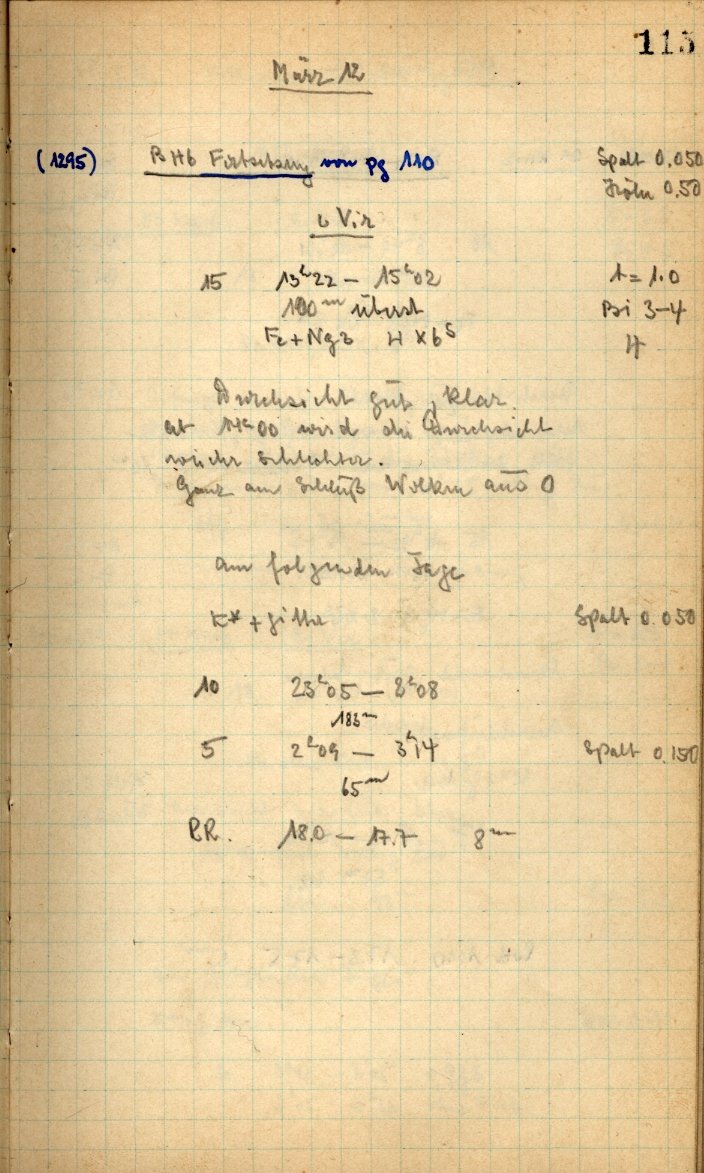 113
März 12
(1295) BHb Fortsetzung von pg 110 Spalt 0.050
Höhe 0.50
ι Vir
15 13h22 – 15h02 t = 1.0
100m überst Bi 3–4
Fe + Ng3 H × 6s H
Durchsicht gut, klar.
at 14h00 wird die Durchsicht
wieder schlechter.
Ganz am Schluß Wolken aus O
am folgenden Tage
K* + Gitter Spalt 0.050
10 23h05 – 2h08
183m
5 2h09 – 3h14 Spalt 0.150
65m
P.R. 18.0 – 17.7 8m